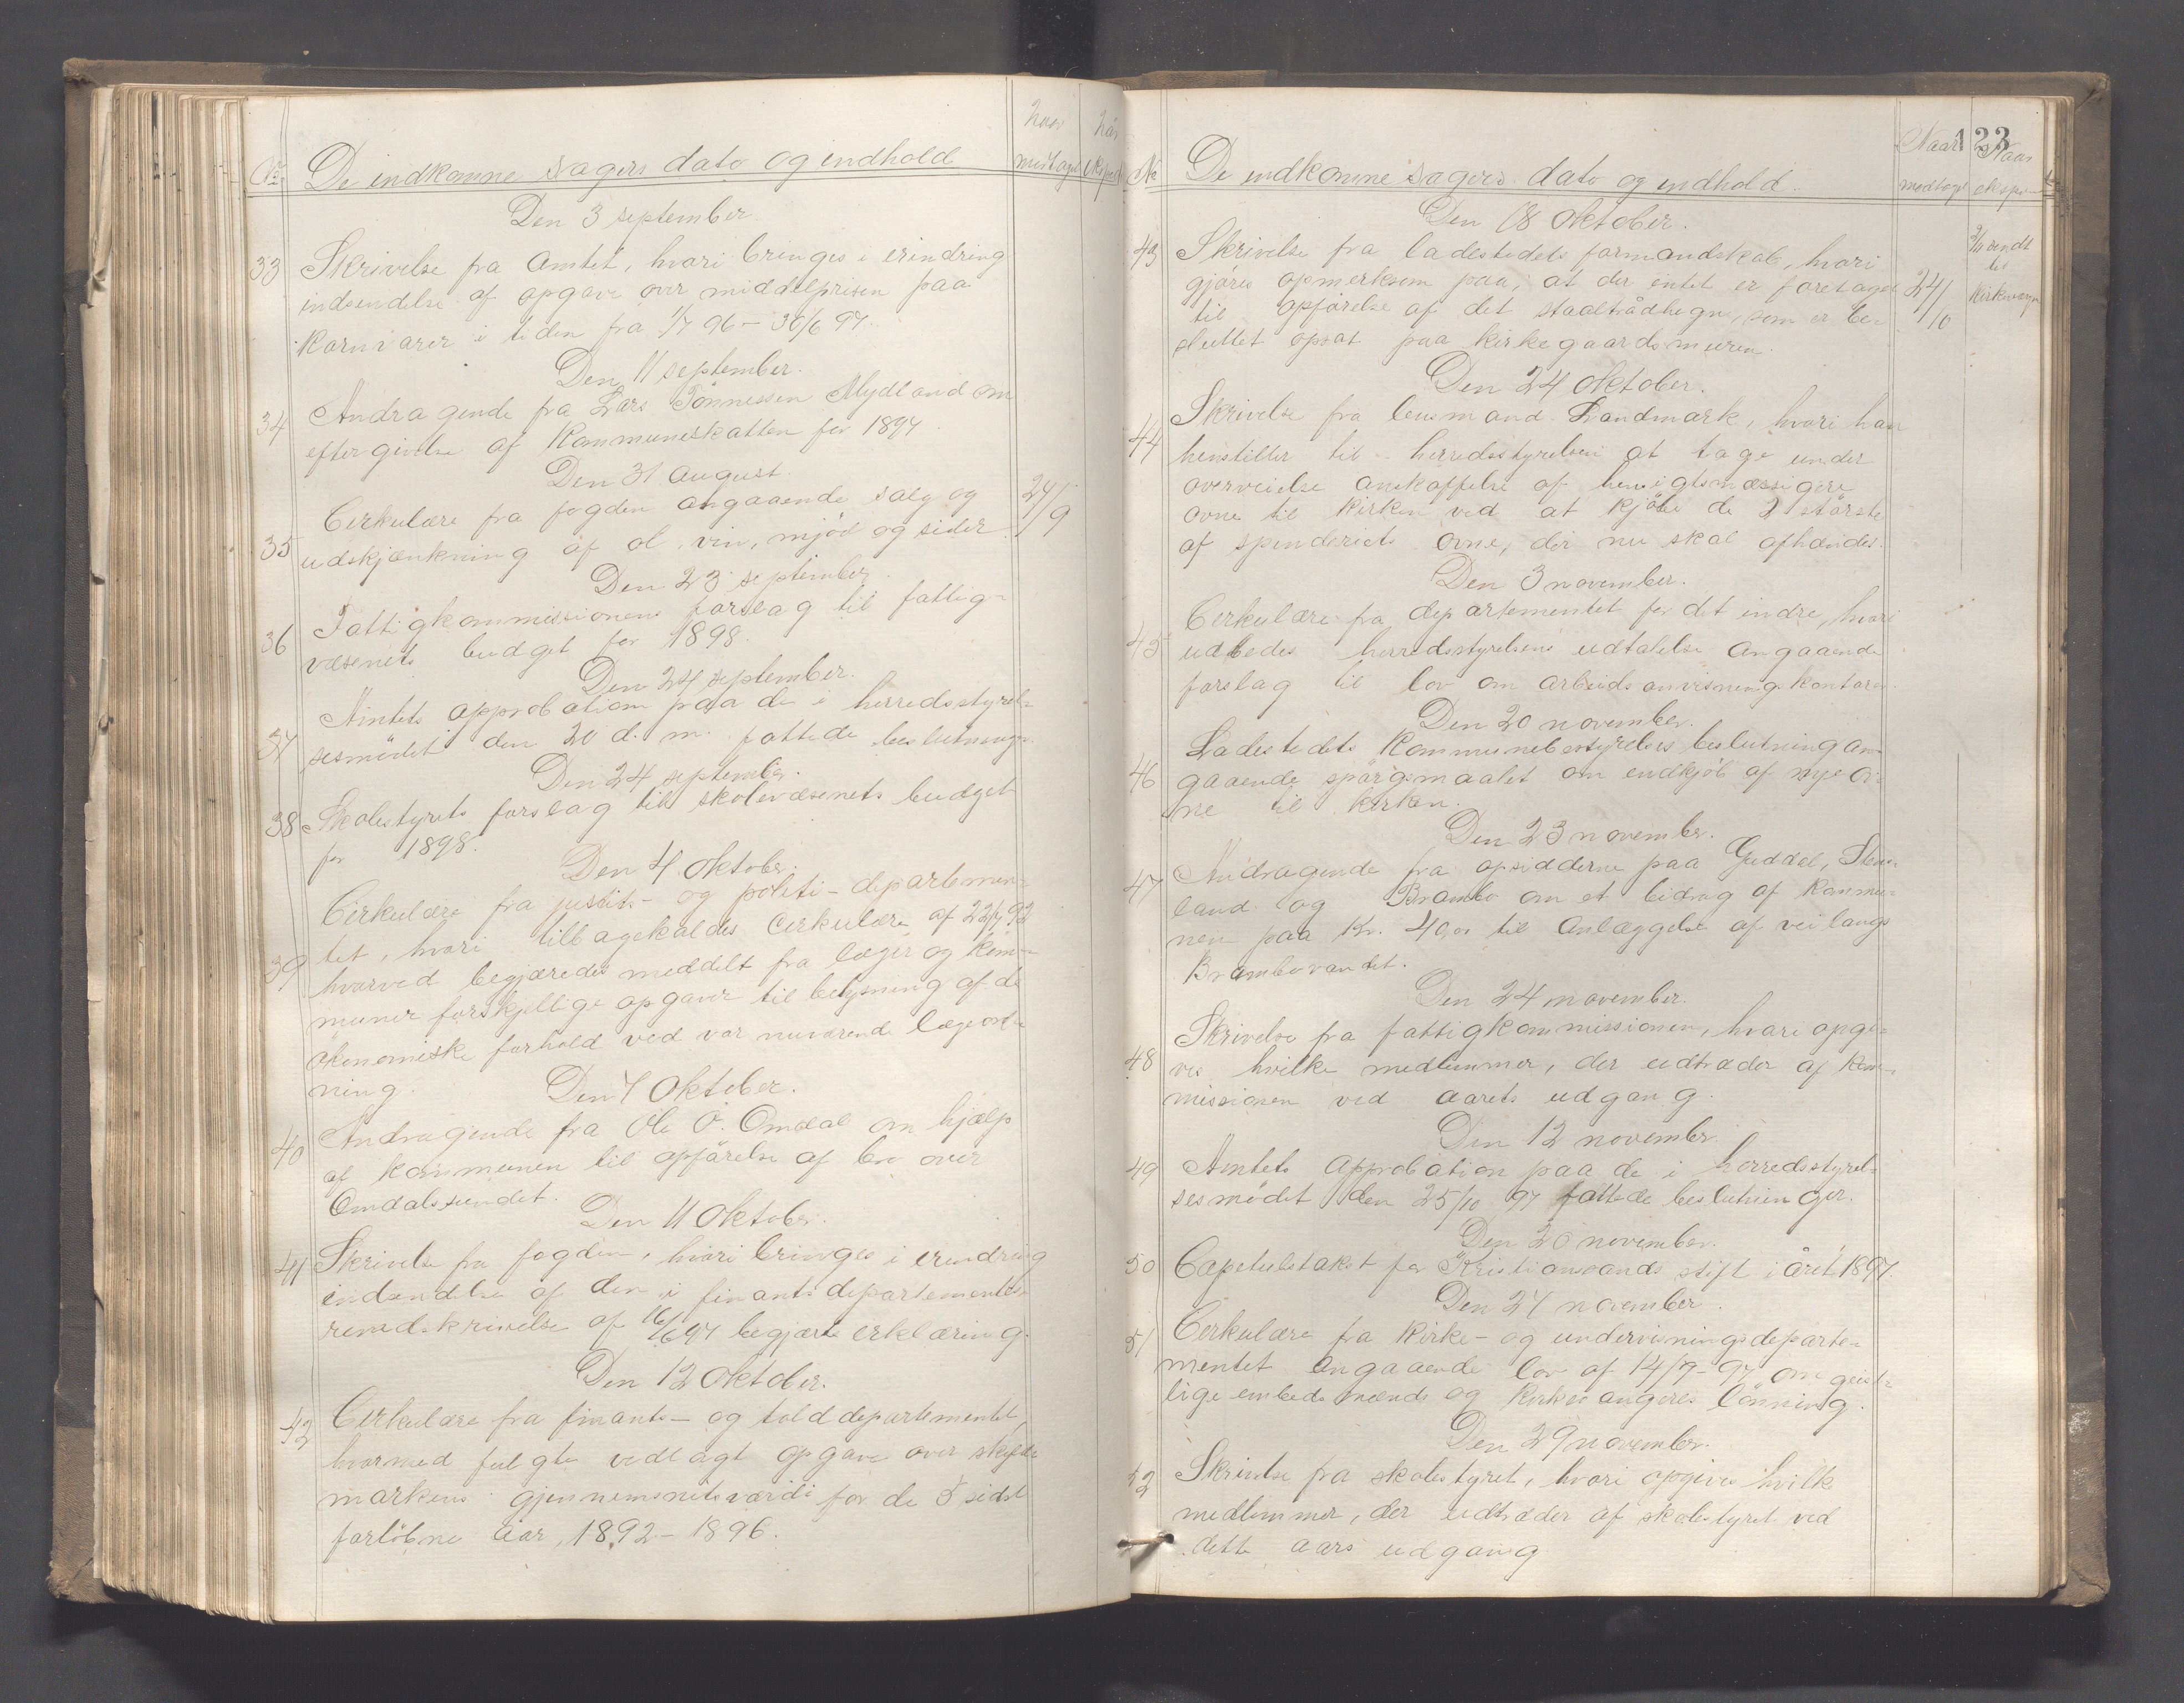 No De indkomne sagers dato og indhold Naar modtaget Naar eksped
Den 3 september.
33 Skrivelse fra Amtet, hvori bringes i erindring
indsendelse af opgave over middelprisen paa
kornvarer i tiden fra 1/7 96 - 30/6 97.
Den 11 september.
34 Andragende fra Lars Tönnessen Mydland om
eftergivelse af Kommuneskatten for 1897.
Den 31 august
35 Cirkulære fra fogden angaaende salg og 24/9
udskjænkning af øl, vin, mjød og sider.
Den 23 september.
36 Fattigkommissionens forslag til fattig-
væsenets budget for 1898.
Den 24 september.
37 Amtets approbation paa de i herredsstyrel-
sesmödet den 20 d. m. fattede beslutninger.
Den 24 september.
38 Skolestyrets forslag til skolevæsenets budget
for 1898.
Den 4 oktober.
39 Cirkulære fra justits- og politi-departemen-
tet, hvori tilbagekaldes Cirkulære af 22/7 92
hvorved begjæredes meddelt fra læger og kom-
muner forskjellige opgaver til belysning af de
ökonomiske forhold ved vor nuværende lægeord-
ning.
Den 7 Oktober.
40 Andragende fra Ole O. Omdal om hjælp
af kommunen til opförelse af bro over
Omdalssundet.
Den 11 Oktober.
41 Skrivelse fra fogden, hvori bringes i erindring
indsendelse af den i finantsdepartementets
rundskrivelse af 16/6 97 begjærte erklæring.
Den 12 Oktober.
42 Cirkulære fra finants- og tolddepartementet,
hvormed fulgte vedlagt opgave over skylde
markens gjennemsnitsværdi for de 5 sidst
forlöbne aar, 1892-1896.
123
No De indkomne sagers dato og indhold. Naar modtaget Naar ekspe
Den 18 oktober.
43 Skrivelse fra ladestedets formandskab, hvori
gjöres opmerksom paa, at der intet er foretaget 24/10
til opförelse af det staaltrådhegn, som er be-
sluttet opsat paa kirkegaardsmuren.
sendt til kirkeværge
Den 24 oktober.
44 Skrivelse fra lensmand Landmark, hvori han
henstiller til herredsstyrelsen at tage under
overveielse anskaffelse af hensigtsmæssigere
ovne til kirken ved at kjöbe de 2 störste
af spinderiets ovne, der nu skal afhændes.
Den 3 november.
45 Cirkulære fra departementet for det indre, hvori
udbedes herredsstyrelsens udtalelse angaaende
forslag til lov om arbeidsanvisningskontorer.
Den 20 november.
46 Ladestedets Kommunebestyrelses beslutning an-
gaaende spörgsmaalet om indkjöb af nye ov-
ne til kirken.
Den 23 november.
47 Andragende fra opsidderne paa Gyddal,
land og Brambo om et bidrag af Kommu-
nen paa Kr. 40,00 til anlæggelse af vei langs
Brambovandet.
Den 24 november.
48 Skrivelse fra fattigkommissionen, hvori opgi-
ves hvilke medlemmer, der udtræder af kom-
missionen ved aarets udgang.
Den 12 november.
49 Amtets approbation paa de i herredsstyrel-
sesmödet den 25/10 97 fattede beslutninger.
Den 20 november.
50 Capitelstakst for Kristianssands stift i året 1897.
Den 27 november.
51 Cirkulære fra kirke- og undervisningsdeparte-
mentet angaaende lov af 14/7-97 om geist-
lige embedsmænds og kirkesangeres lönning.
Den 29 november.
52 Skrivelse fra skolestyret, hvori opgives hvilk
medlemmer, der udtræder af skolestyret ved
dette aars udgang